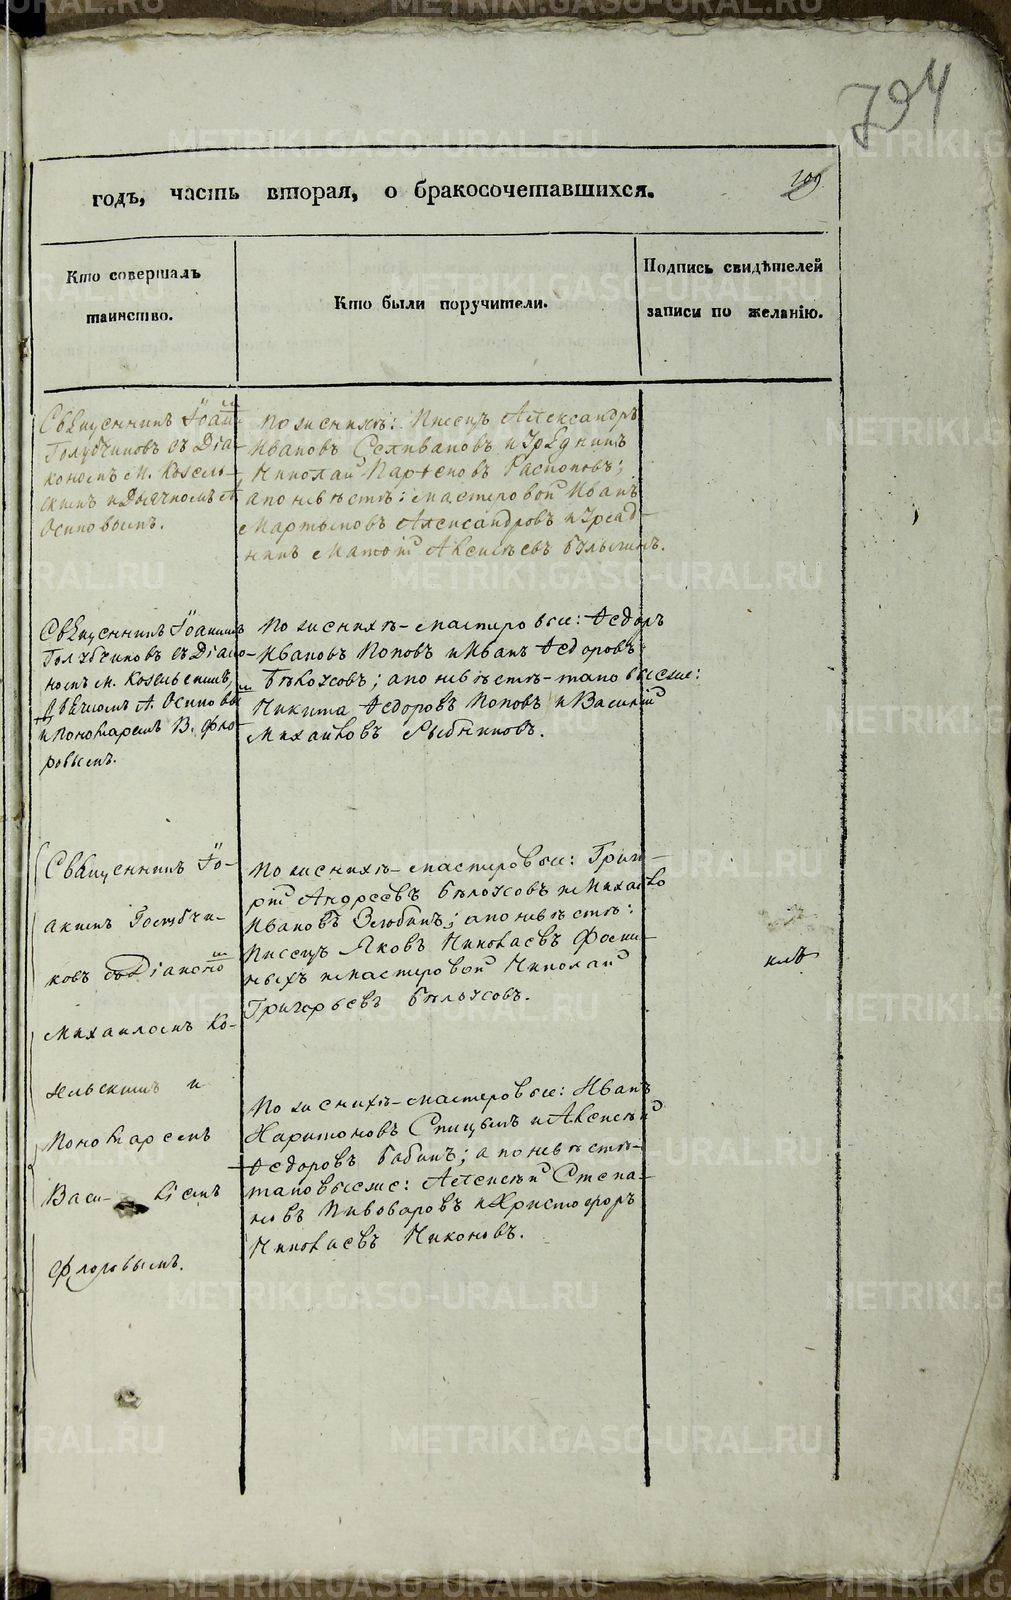 794
годъ, часть вторая, о бракосочетавшихся.
109
Кто совершалъ
таинство.
Кто были поручители.
Подпись свидѣтелей
записи по желанію.
Священникъ Іоаки-
Голубчиковъ съ Діа-
кономъ М. Козель-
скимъ и Дьячкомъ А.
Осиповымъ.
По женихѣ: Писецъ Александръ
Ивановъ Селивановъ и Урядникъ
Николай Парѳеновъ Распоповъ;
а по невѣстѣ: мастеровой Иванъ
Мартыновъ Александровъ и Уряд-
никъ Матвѣй Алексѣевъ
Священникъ Іоакимъ
Голубчиковъ съ Діако-
номъ М. Козельскимъ,
Дьячкомъ А. Осиповы
и Пономаремъ В. Фло-
ровымъ.
По женихѣ - мастеровые: Ѳедоръ
Ивановъ Поповъ и Иванъ Ѳедоровъ
Бѣлоусовъ; а по невѣстѣ - таковыеже:
Никита Ѳедоровъ Поповъ и Василій
Михайловъ Рыбниковъ.
Священникъ Іо-
акимъ Голубчи-
ковъ съ Діаконо
Михаиломъ Ко-
зельскимъ и
Пономаремъ
Васи- ліемъ
Флоровымъ.
По женихѣ - мастеровые: Григо-
рій Андреевъ Бѣлоусовъ и Михайло
Ивановъ Зюбинъ; а по невѣстѣ:
Писецъ Яковъ Николаевъ Фоми-
ныхъ и мастеровой Николай
Григорьевъ Бѣлоусовъ.
По женихѣ - мастеровые: Иванъ
Харитоновъ Спицынъ и Алексѣй
Ѳедоровъ Бабинъ; а по невѣстѣ -
таковыеже: Алексѣй Степа-
новъ Пивоваровъ и Христофоръ
Николаевъ Никоновъ.
METRIKI.GASO-URAL.RU